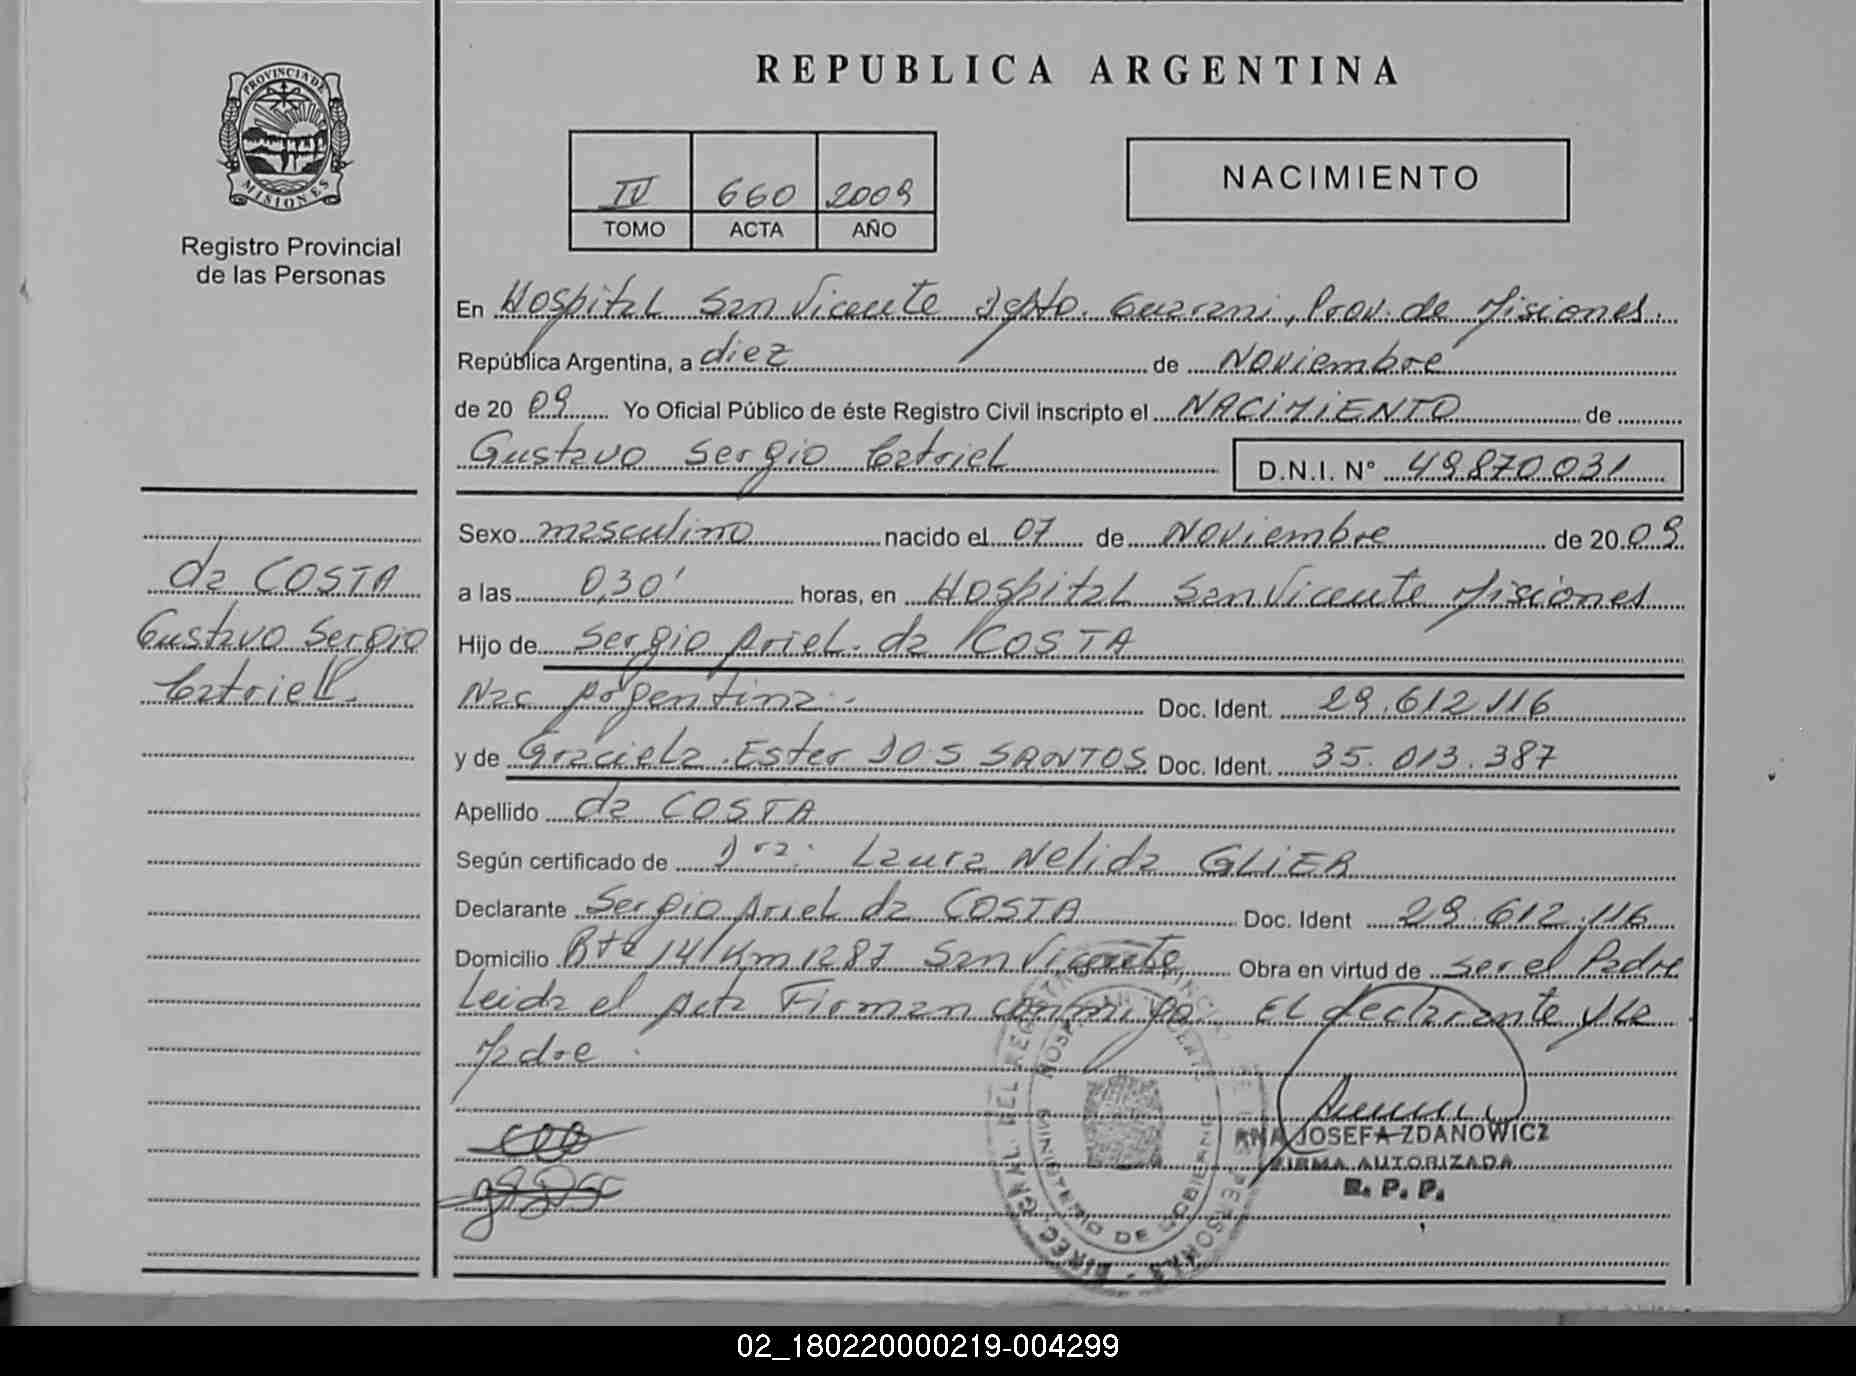 PROVINCIA DE
MISIONES
Registro Provincial
de las Personas
da COSTA
Gustavo Sergio
Catriel.-
REPUBLICA ARGENTINA
IV 660 2009
TOMO ACTA AÑO
NACIMIENTO
En Hospital San Vicente Dpto. Guarani, Prov. de Misiones.
República Argentina, a diez de Noviembre
de 20 09 Yo Oficial Público de éste Registro Civil inscripto el NACIMIENTO de
Gustavo Sergio Catriel D.N.I. N° 49.870.031
Sexo masculino nacido el 07 de Noviembre de 20 09
a las 0,30' horas, en Hospital San Vicente Misiones
Hijo de Sergio Ariel da COSTA
Nac Argentina.- Doc. Ident. 29.612.116
y de Graciela Ester DOS SANTOS Doc. Ident. 35.013.387
Apellido da COSTA
Según certificado de Dra: Laura Nelida GLIER
Declarante Sergio Ariel da COSTA Doc. Ident 29.612.116
Domicilio Rta 14 Km 1287 San Vicente Obra en virtud de ser el Padre
Leida el Acta Firman conmigo El declarante y la
Madre.
ANA JOSEFA ZDANOWICZ
FIRMA AUTORIZADA
R. P. P.
DIREC. GRAL. DEL REG. PERSONAS
MINISTERIO DE GOBIERNO
02_180220000219-004299